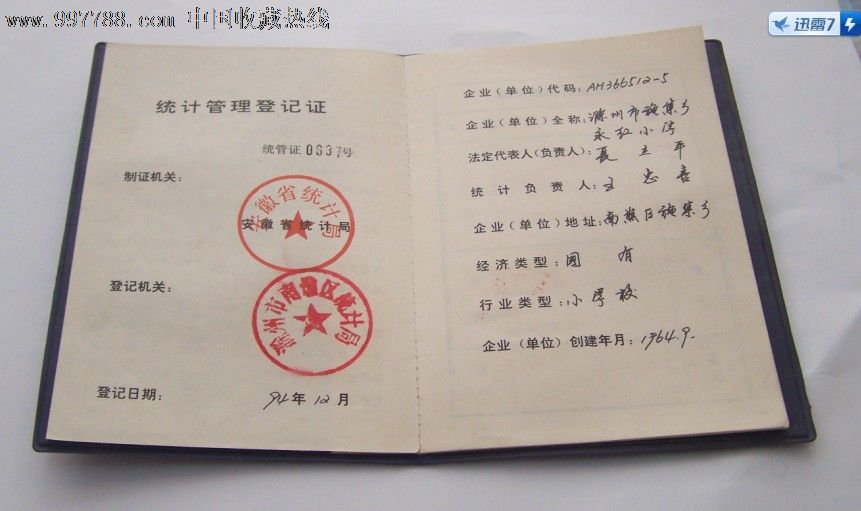 www.997788.com 中国收藏热线
迅雷7
统计管理登记证
统管证0637号
制证机关:
安徽省统计局
安徽省统计局
登记机关:
滁州市南谯区统计局
登记日期: 94年12月
企业(单位)代码: AH366512-5
企业(单位)全称: 滁州市施集乡
永红小学
法定代表人(负责人): 聂立平
统计负责人: 王忠喜
企业(单位)地址: 南谯区施集乡
经济类型: 国有
行业类型: 小学校
企业(单位)创建年月: 1964.9.